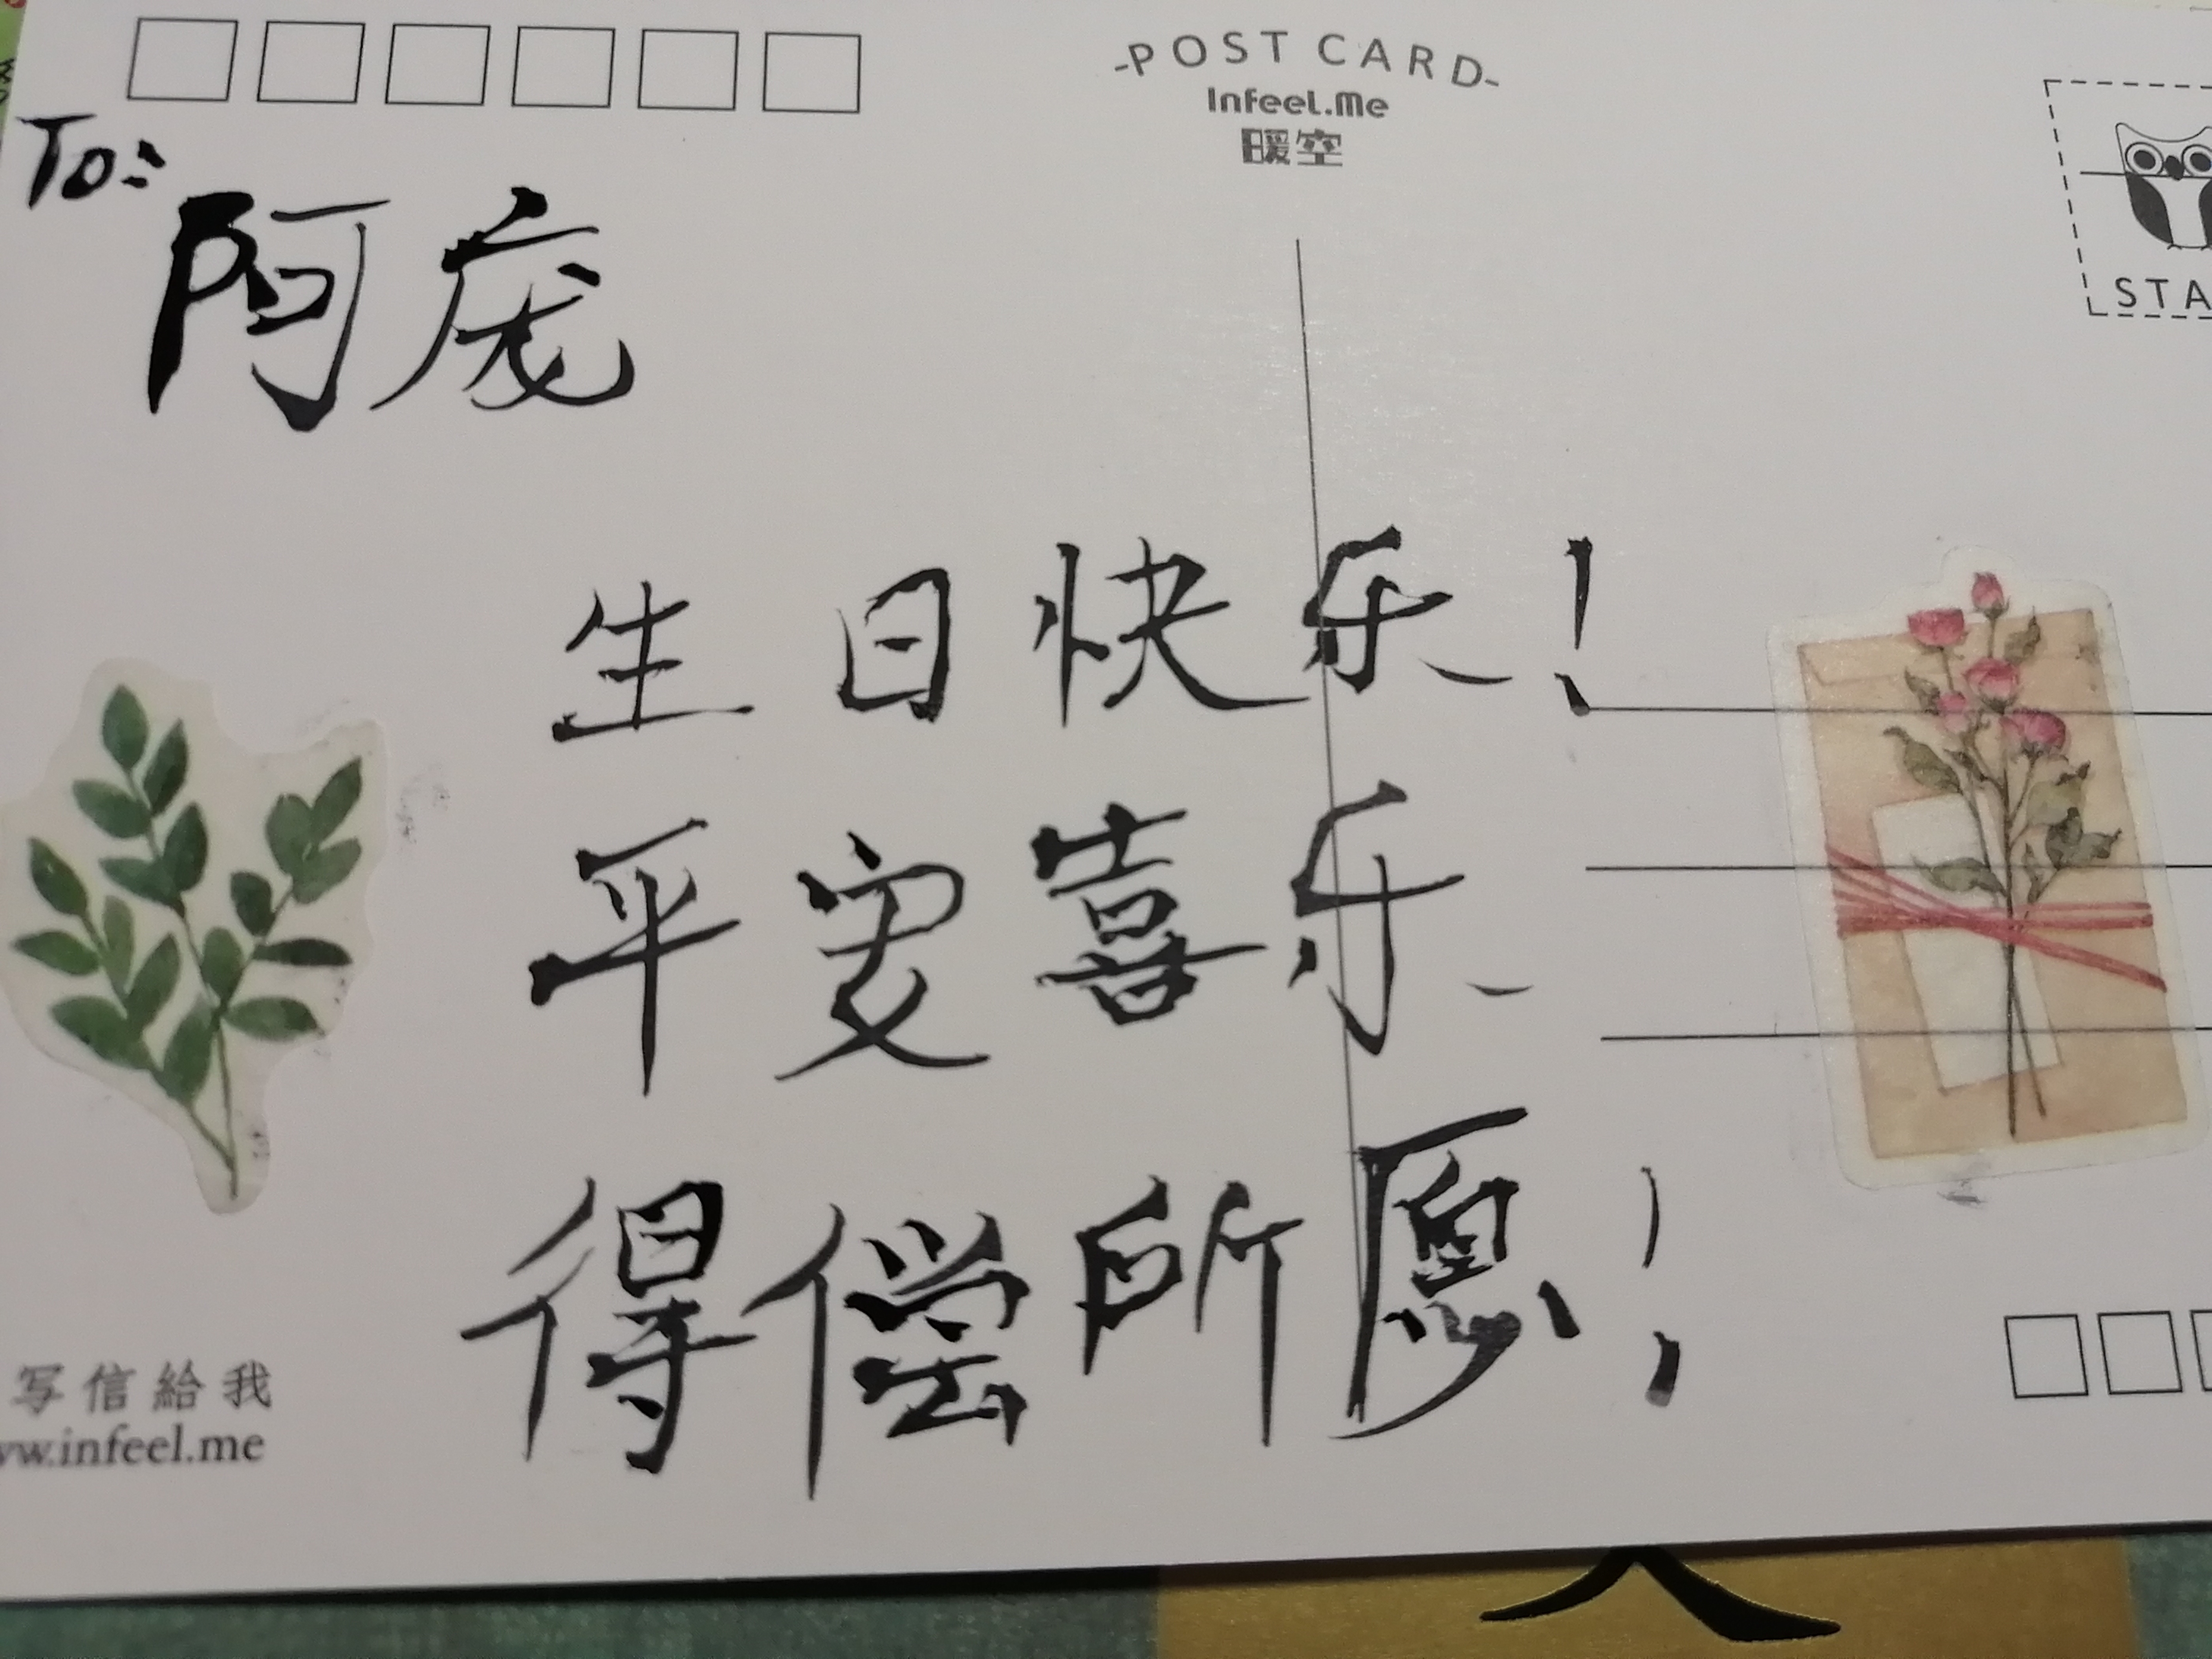 -POST CARD-
Infeel.Me
暖空
To:
阿庞
STA
生日快乐!
平安喜乐
得偿所愿!
写信給我
ww.infeel.me